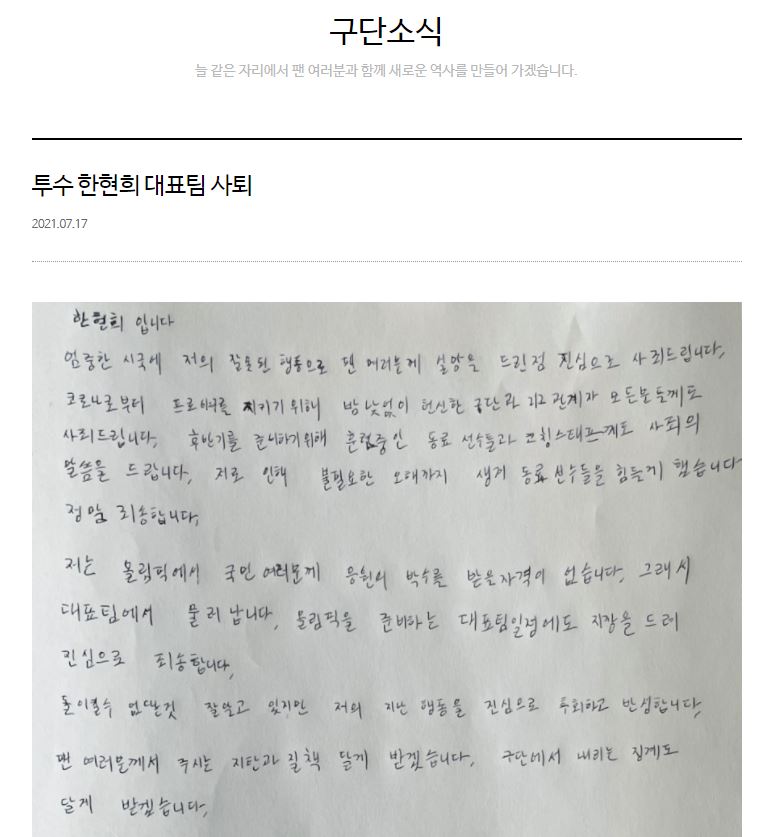 구단소식
늘 같은 자리에서 팬 여러분과 함께 새로운 역사를 만들어 가겠습니다.
투수 한현희 대표팀 사퇴
2021.07.17
한현희 입니다
엄중한 시국에 저의 잘못된 행동으로 팬 여러분께 실망을 드린점 진심으로 사죄드립니다.
코로나로부터 프로야구를 지키기 위해 밤낮없이 헌신한 구단과 리그 관계자 모든분들께도
사죄드립니다. 후반기를 준비하기위해 훈련중인 동료 선수들과 코칭스태프께도 사죄의
말씀을 드립니다. 저로 인해 불필요한 오해까지 생겨 동료선수들을 힘들게 했습니다
정말 죄송합니다.
저는 올림픽에서 국민여러분께 응원의 박수를 받을자격이 없습니다. 그래서
대표팀에서 물러납니다. 올림픽을 준비하는 대표팀일정에도 지장을 드려
진심으로 죄송합니다.
돌이킬수 없단것 잘알고 있지만 저의 지난 행동을 진심으로 후회하고 반성합니다.
팬 여러분께서 주시는 지탄과 질책 달게 받겠습니다. 구단에서 내리는 징계도
달게 받겠습니다.